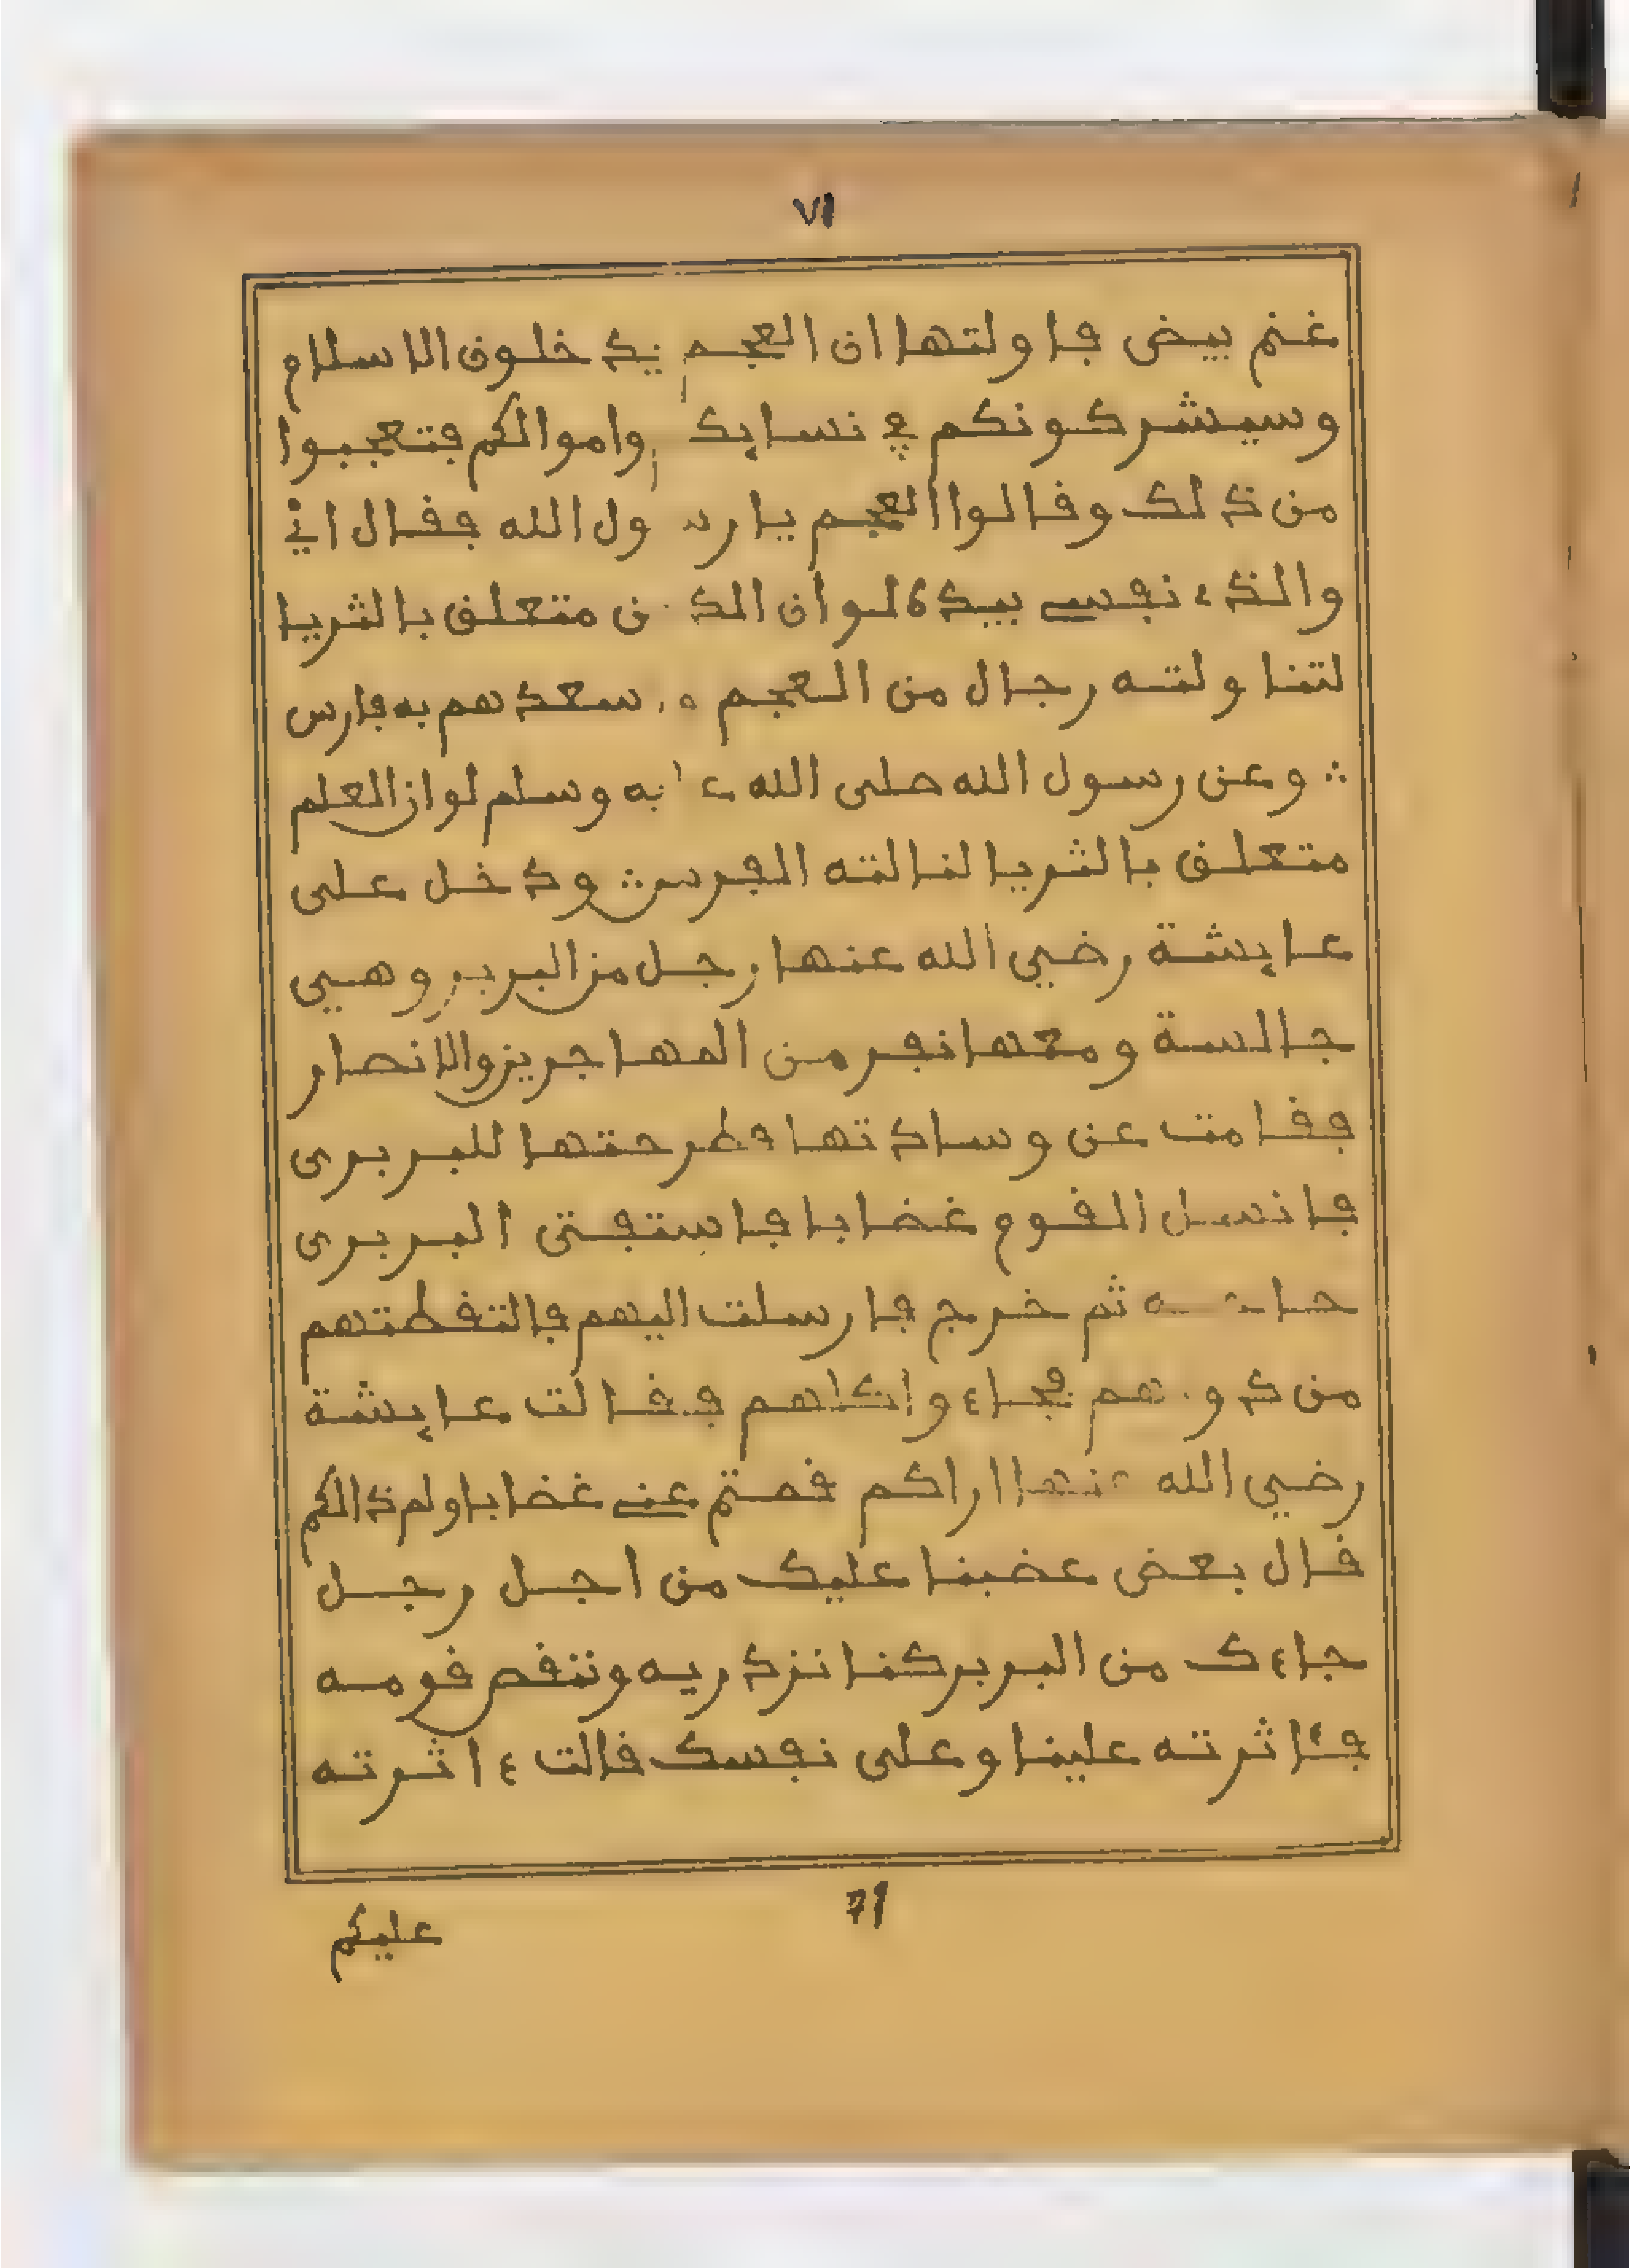 ٧١
غنم بيض فاولتها ان العجم يدخلون الاسلام
وسيشركونكم في نسايكم واموالكم فتعجبوا
من ذلك وقالوا العجم يا رسول الله فقال اني
والذي نفسي بيده لو ان الدين متعلق بالثريا
لتناولته رجال من العجم واسعدهم به فارس
وعن رسول الله صلى الله عليه وسلم لو ان العلم
متعلق بالثريا لنالته الفرس ودخل على
عايشة رضي الله عنها رجل من البربر وهي
جالسة ومعها نفر من المهاجرين والانصار
فقامت عن وسادتها فطرحتها للبربرى
فانسل القوم غضابا فاستفتى البربرى
حاجته ثم خرج فارسلت اليهم فالتقطتهم
من دورهم فجاءوا كلهم فقالت عايشة
رضي الله عنها اراكم قمتم عني غضابا ولم ذالكم
قال بعض غضبنا عليك من اجل رجل
جاءك من البربر كنا نزدريه وننقص قومه
فئاثرته علينا وعلى نفسك قالت ءاثرته
71
عليكم